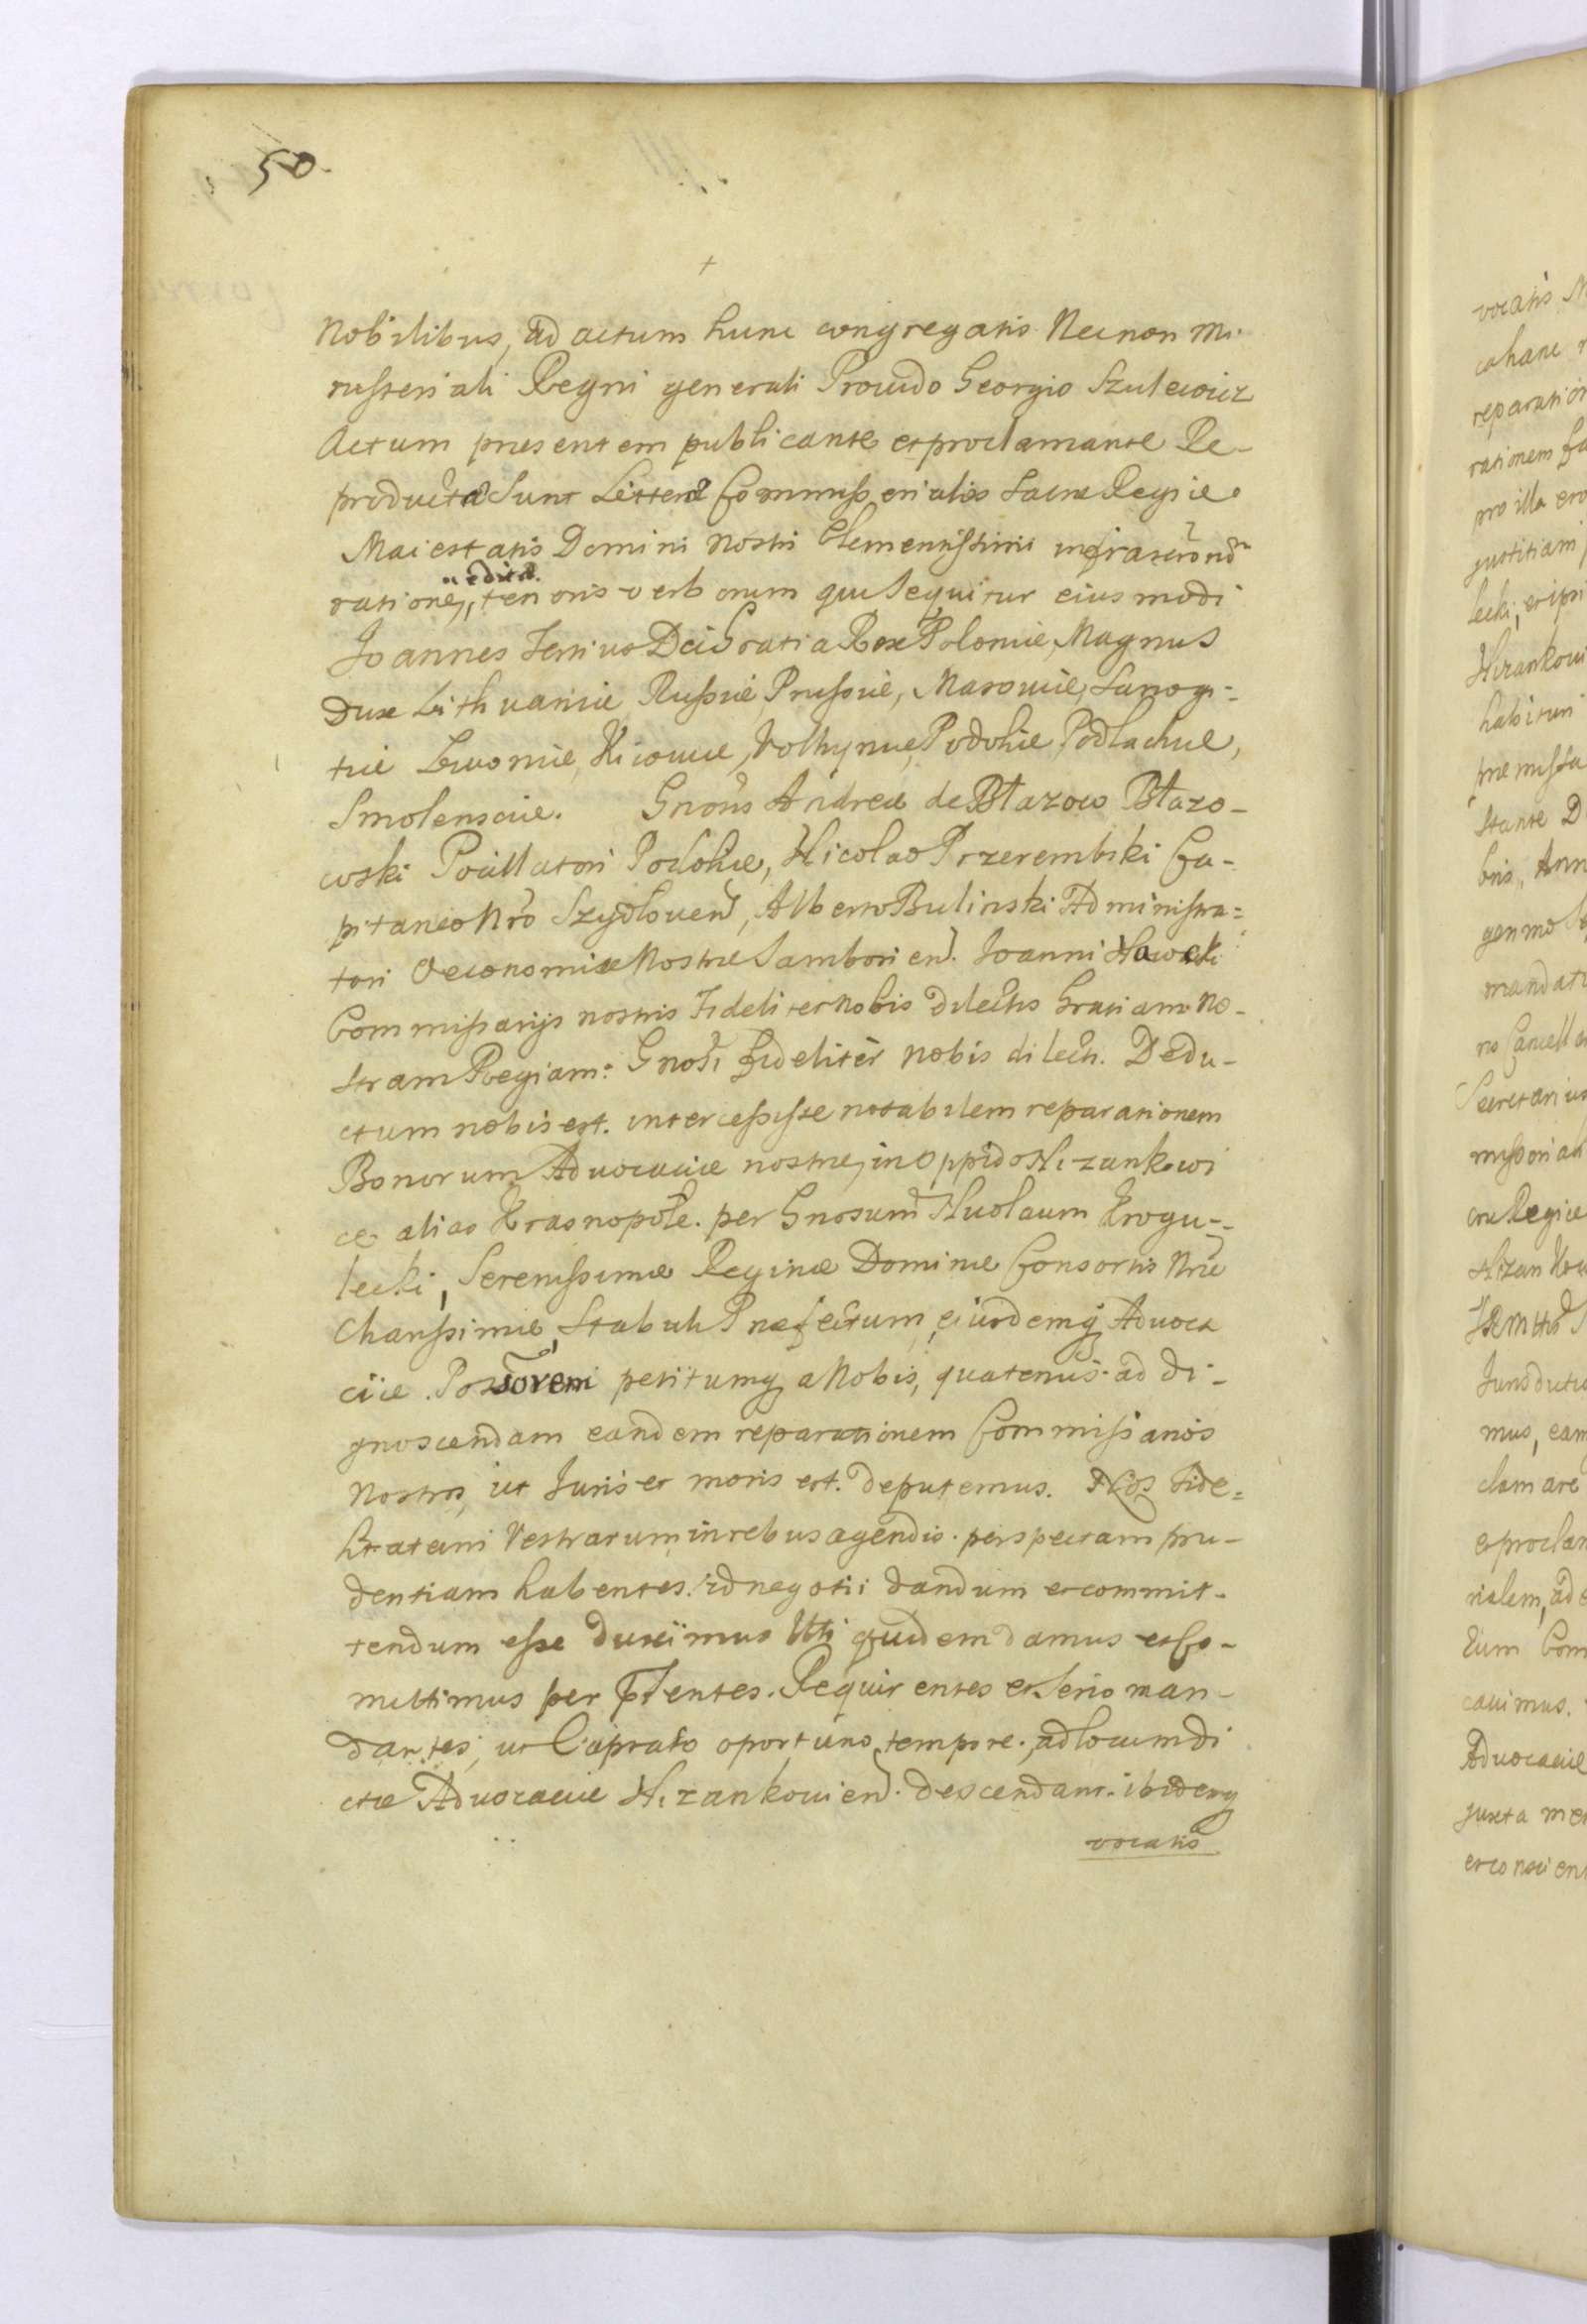 50.
Nobilibus, ad actum hunc congregatis Necnon Mi-
nisteriali Regni generali Provido Georgio Szulewicz
Actum presentem publicante et proclamante Re-
productæ Sunt Litteræ Commissoriales Sacræ Regiæ
Maiestatis Domini Nostri Clementissimi
ratione, editæ. tenoris verborum qui Sequitur eiusmodi
Joannes Tertius Dei Gratia Rex Poloniæ, Magnus
Dux Lithvaniæ Russiæ, Prussiæ, Masoviæ, Samogi-
tiæ Livoniæ, Kijoviæ, Volhyniæ, Podoliæ, Podlachiæ,
Smolensciæ. Gnosis Andreæ de Błazow Błazo-
wski Pocillatori Podoliæ, Nicolao Przerembski Ca-
pitaneo Nro Szydlovien, Alberto Bulinski Administra-
tori Oeconomiæ Nostræ Samborien. Joanni
Commissarijs nostris Fideliter Nobis dilectis Gratiam No-
stram Regiam. Gnosi fideliter nobis dilecti. Dedu-
ctum nobis est. intercessisse notabilem reparationem
Bonorum Advocatiæ nostræ, in Oppido Nizankowi
ce alias Krasnopole. per Gnosum Nicolaum Krogu-
lecki, Serenissimæ Reginæ Dominæ Consortis Nræ
Charissimæ, Stabuli Præfectum, eiusdemq Advoca
ciæ. Possorem petitumq a Nobis, quatenus ad di-
gnoscendam eandem reparationem Commissarios
Nostros, ut Juris et moris est. deputemus. Nos Fide-
litatum Vestrarum in rebus agendis. perspectam pru-
dentiam habentes. id negotii dandum et commit-
tendum esse duximus Uti quidem damus et Co-
mittimus per pntentes. Requirentes et Serio man-
dantes, ut Captato oportuno tempore. ad locum di
ctæ Advocatiæ Nizankovien. descendant. ibidemq
vocatis